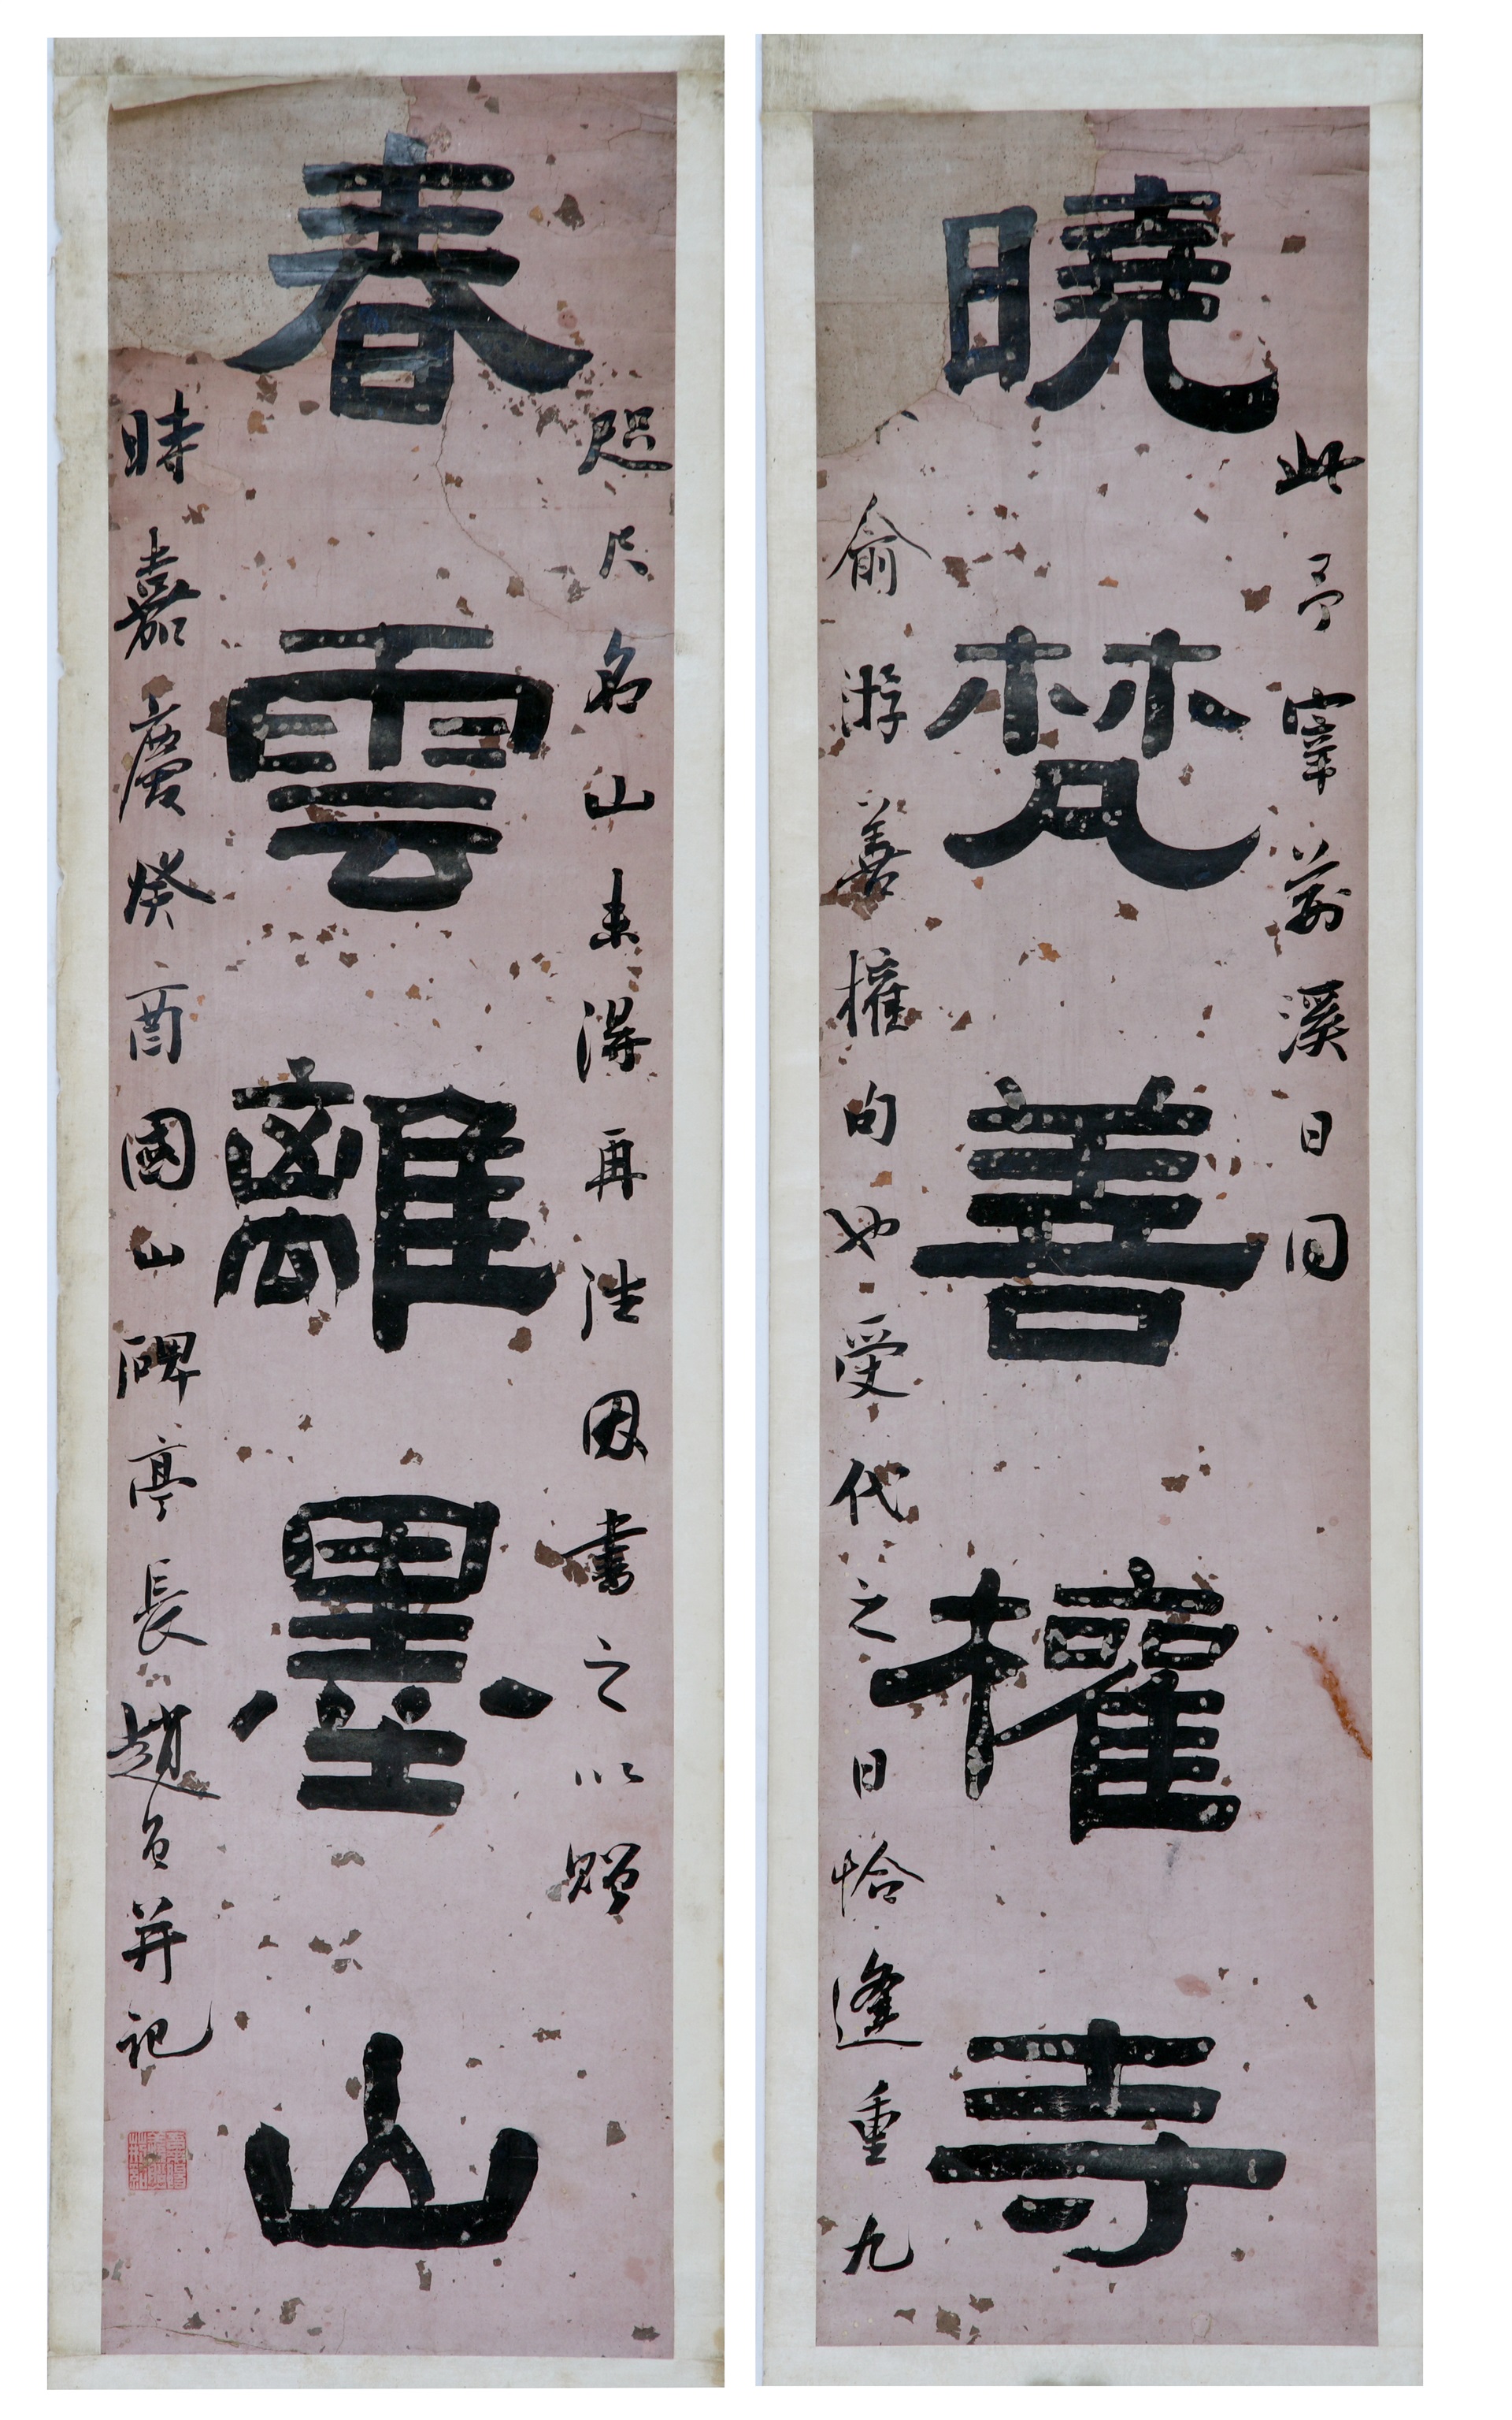 曉梵善權寺
此予宰荊溪日同
俞游善權句也受代之日恰逢重九
春雲離墨山
咫尺名山未得再因書之以贈
時嘉慶癸酉國山碑亭長趙并記